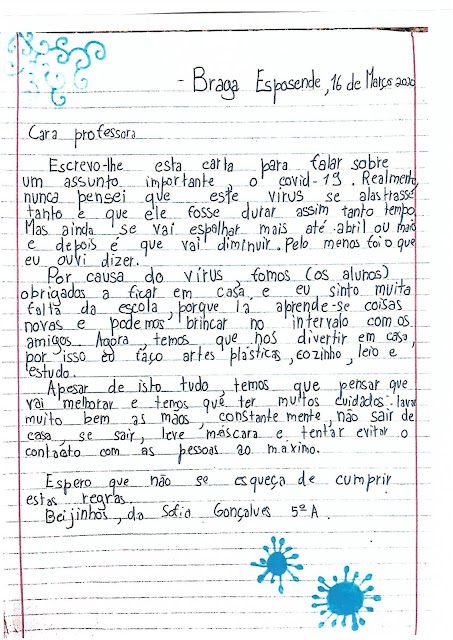 - Braga Esposende, 16 de Março 2020
Cara professora
Escrevo-lhe esta carta para falar sobre
um assunto importante, o covid-19. Realmente,
nunca pensei que este vírus se alastrasse
tanto e que ele fosse durar assim tanto tempo.
Mas ainda se vai espalhar mais até abril ou maio
e depois é que vai diminuir. Pelo menos foi o que
eu ouvi dizer.
Por causa do vírus, fomos (os alunos)
obrigados a ficar em casa, e eu sinto muita
falta da escola, porque lá aprende-se coisas
novas e podemos brincar no intervalo com os
amigos. Agora, temos que nos divertir em casa,
por isso eu faço artes plásticas, cozinho, leio e
estudo.
Apesar de isto tudo, temos que pensar que
vai melhorar e temos que ter muitos cuidados: lavar
muito bem as mãos, constantemente, não sair de
casa, se sair, leve máscara e tentar evitar o
contacto com as pessoas ao máximo.
Espero que não se esqueça de cumprir
estas regras.
Beijinhos, da Sofia Gonçalves 5º A.